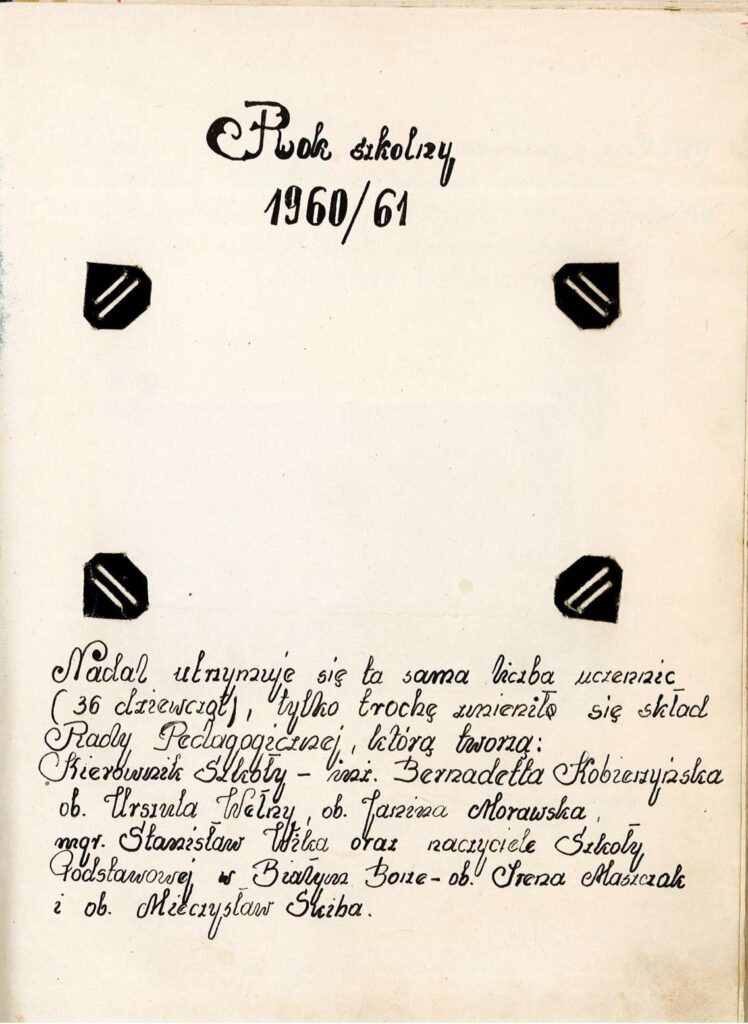 Rok szkolny
1960/61
Nadal utrzymuje się ta sama liczba uczennic
(36 dziewcząt), tylko trochę zmieniło się skład
Rady Pedagogicznej, którą tworzą:
Kierownik Szkoły - inż. Bernadetta Kobierzyńska
ob. Urszula Wełny, ob. Janina Morawska,
mgr. Stanisław Wilka oraz naczyciele Szkoły
Podstawowej w Białym Borze - ob. Irena Maszczak
i ob. Mieczysław Skiba.